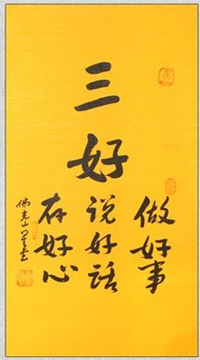 三好
做好事
说好话
存好心
佛光山星雲